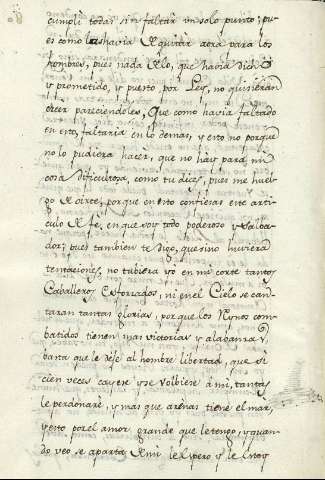 cumpli todas sin faltar un solo punto; pu-
es como las havia de quitar aora para los
hombres, pues nada de lo, que havia dicho
y prometido, y puesto por Ley, no quisieran
creer pareciendoles, que como havia faltado
en esto, faltaria en lo demas, y esto no porque
no lo pudiera hacer, que no hay para mi
cosa dificultosa, como tu dices, pues me huel-
go de oirte, porque en esto confiesas este arti-
culo de fe, en que soy todo poderoso y Salva-
dor; pues tambien te digo, que si no huviera
tentaciones, no tubiera yo en mi corte tantos
Caballeros Esforzados, ni en el Cielo se can-
taran tantas glorias, porque los Reynos com-
batidos tienen mas victorias y alabanza y
basta que le dese al hombre libertad, que si
cien veces cayere y se volbiere à mi, tantas
le perdonarè, y mas que arenas tiene el mar,
y esto por el amor grande que le tengo, y quan-
do veo se aparta de mi le espero y le estoy